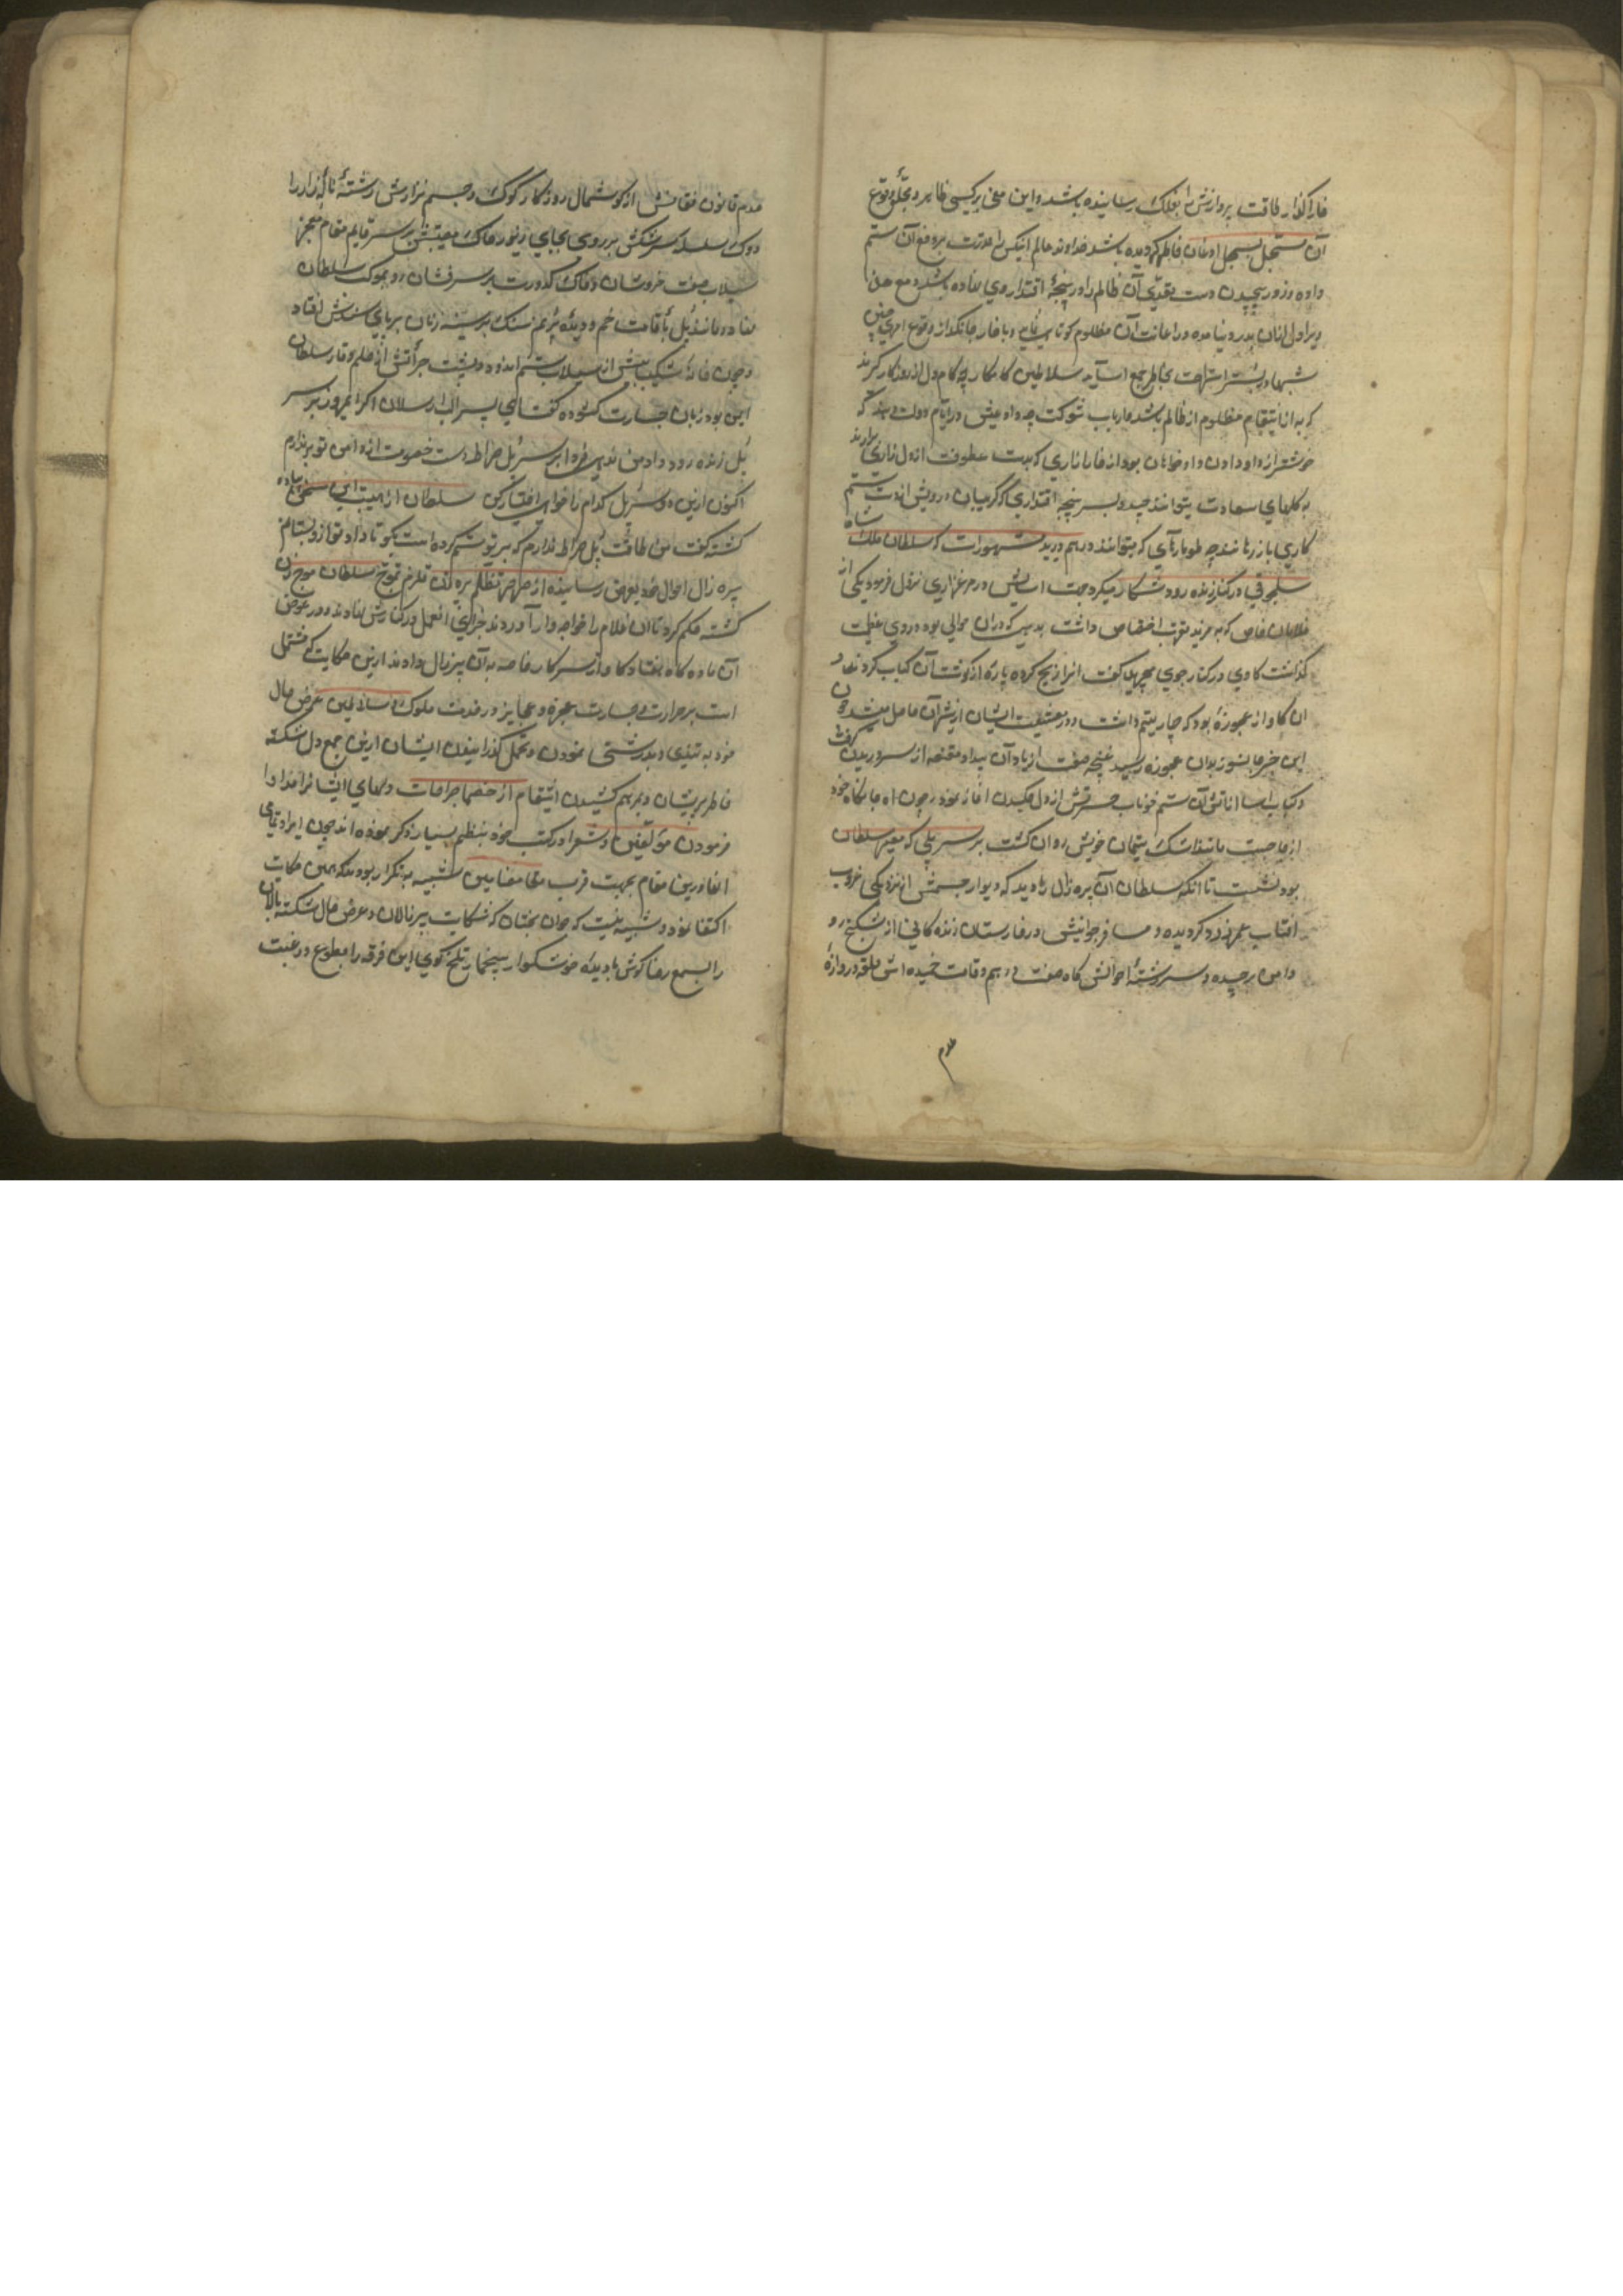 خارا گذار طاقت پروازش را بفلک رسانیده باشد و این معنی بر کسی ظاهر و
آن باشد خداوند عالم انیکس را قدرت بر دفع آن ستم
داده و زور پیچیدن دست تعدی آن ظالم را در پنجهٔ اقتدار وی نهاده باشد و مع هذا
در اعانت آن مظلوم
شبها در بستر استراحت بخاطر جمع سلاطین کامکار چه کام دل از روزگار گیرند
که به از انتقام مظلوم از ظالم باشد و ارباب شوکت چه داد عیش در ایام دولت دهند که
خوشتر از داد دادن داد خواهان بود از خارزاری که
به گلهای سعادت بتوانند چید و بسر پنجه اقتداری که گریبان درویش از دست ستم
کاری باز رهانند چه طومارهای که بتوانند درهم درید مشهورست که سلطان ملک شاه
سلجوقی در کنار زنده رود شکار میکرد جهت اسایش در مرغزاری نزول فرمود یکی از
غلامان خاص که به مزید قربت اختصاص داشت بدیهی که دران حوالی بود در وی
گذاشت گاوی در کنار جوی گرفت انرا ذبح کرده پاره از گوشت آن کباب کردند و
ان گاو از عجوزهٔ بود که چار یتیم داشت و وجه معیشت ایشان از شیر آن حاصل میشد چون
این خبر جانسوز بدان عجوزه رسید غنچه صفت از باد آن بیداد مقنعه از سر دریدن گرفت
و کباب اسا از اتش آن ستم خوناب حسرتش از دل چکیدن اغاز نمود چون آه جانکاه خود
از جا جست مانند اشک یتیمان خویش روان گشت بر سر پلی که معبر سلطان
بود نشست تا انکه سلطان آن پیره زال را دید که دیوار جسمش از نزدیکی غروب
افتاب عمر زرد گردیده و مسافر جوانیش در خارستان زنده گانی از شکنج رو
دامن بر چیده و سر رشتهٔ احوالش کاه صفت درهم و قامت خمیده اش حلقه دروازهٔ
عدم
عدم قانون فغانش از گوشمال روزگار کوک و جسم نزارش رشتهٔ ناله زار را
دوک سلسله سرشکش بر روی بجای زیور خاک بر سر قایم مقام معجر
سیلاب صفت خروشان و خاک کدورت بر سر فشان رو بموکب سلطان
نهاد و مانند پل با قامت خم و دیدهٔ پر نم سنک بر سینه زنان بر پای سمندش افتاد
و چون خار اشکیبایش از سیلاب ستم و پشت جرأتش از حلم و وقار سلطان
ایمن بود زبان جسارت گشوده گفت ای پسر الب ارسلان اگر امروز بر سر
پل زنده رود داد من ندهی فردا بر سر پل صراط دست خصومت از دامن تو بر ندارم
اکنون ازین دو سر پل کدام را خواهی اختیار کن سلطان از هیبت این سخن پیاده
گشته گفت من طاقت پل صراط ندارم که بر تو ستم کرده است بگو تا داد تو ازو بستانم
پیره زال احوال خود بعرض رسانیده از صرصر تظلم پیره زن قلزم سلطان موج زن
گشته حکم کرد تا ان غلام را خوار و زار آوردند جزای ان عمل در کنارش نهادند و در عوض
آن ماده گاو هفتاد گاو از سرکار خاصه به آن پیر زال دادند ازین حکایت که مشتمل
است بر حرارت جسارت عجزه و عجایز در خدمت ملوک و سلاطین عرض حال
خود به تندی و درشتی نمودن و تحمل گذرانیدن ایشان ازین جمع دل شکسته
خاطر پریشان و بمرهم کشیدن انتقام از خصما جراحات دلهای ایشانرا مداوا
فرمودن مؤلفین و شعرا در کتب خود بنظم بسیار ذکر نموده اند چون ایراد تمامی
انها درین مقام بجهت قرب مضامین شبیه به تکرار بود بلکه بهمین حکایت
اکتفا نمود و شبیه نیست که جوان بختان که شکایت پیر نالان و عرض حال شکسته بالان
را بسمع رضا گوش داده خوشگوار سخنهای تلخ گوی این فرقه را بطوع و رغبت